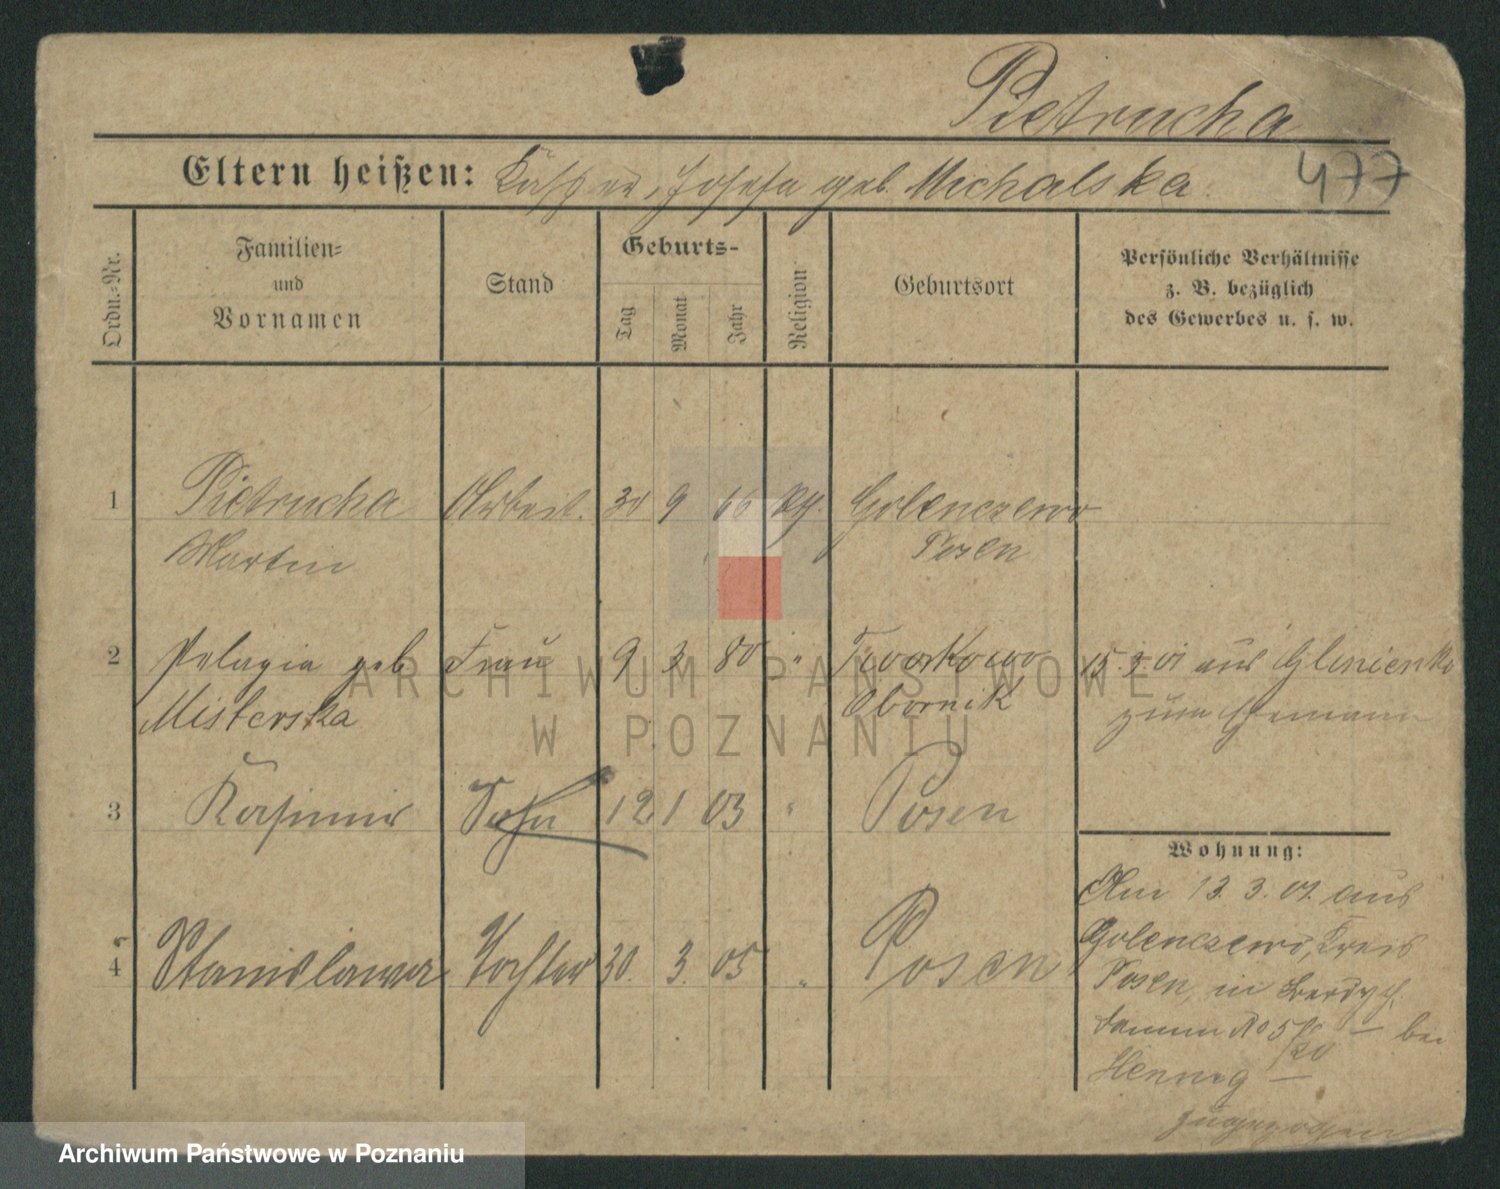 Pietrucha
477
Eltern heißen: Kasper, Josefa geb. Michalska.
Ordn.-Nr.
Familien- und Vornamen
Stand
Geburts-
Tag
Monat
Jahr
Religion
Geburtsort
Persönliche Verhältnisse
z. B. bezüglich
des Gewerbes u. s. w.
1 Pietrucha Arbeit. 30 9 66 Golenczewo
Martin Posen
2 Pelagia geb Frau 9 3 80 " 15.3.01 aus Glinienko
Misterska Obornik zum Ehemann
3 Kasimir Sohn 12 1 03 " Posen
4 Stanislawa Tochter 30. 3. 05 " Posen
Wohnung:
Am 13.3.01. aus
Golenczewo, Kreis
Posen, in
damm No 5 — bei
Hennig —
zugezogen
ARCHIWUM PAŃSTWOWE
W POZNANIU
Archiwum Państwowe w Poznaniu